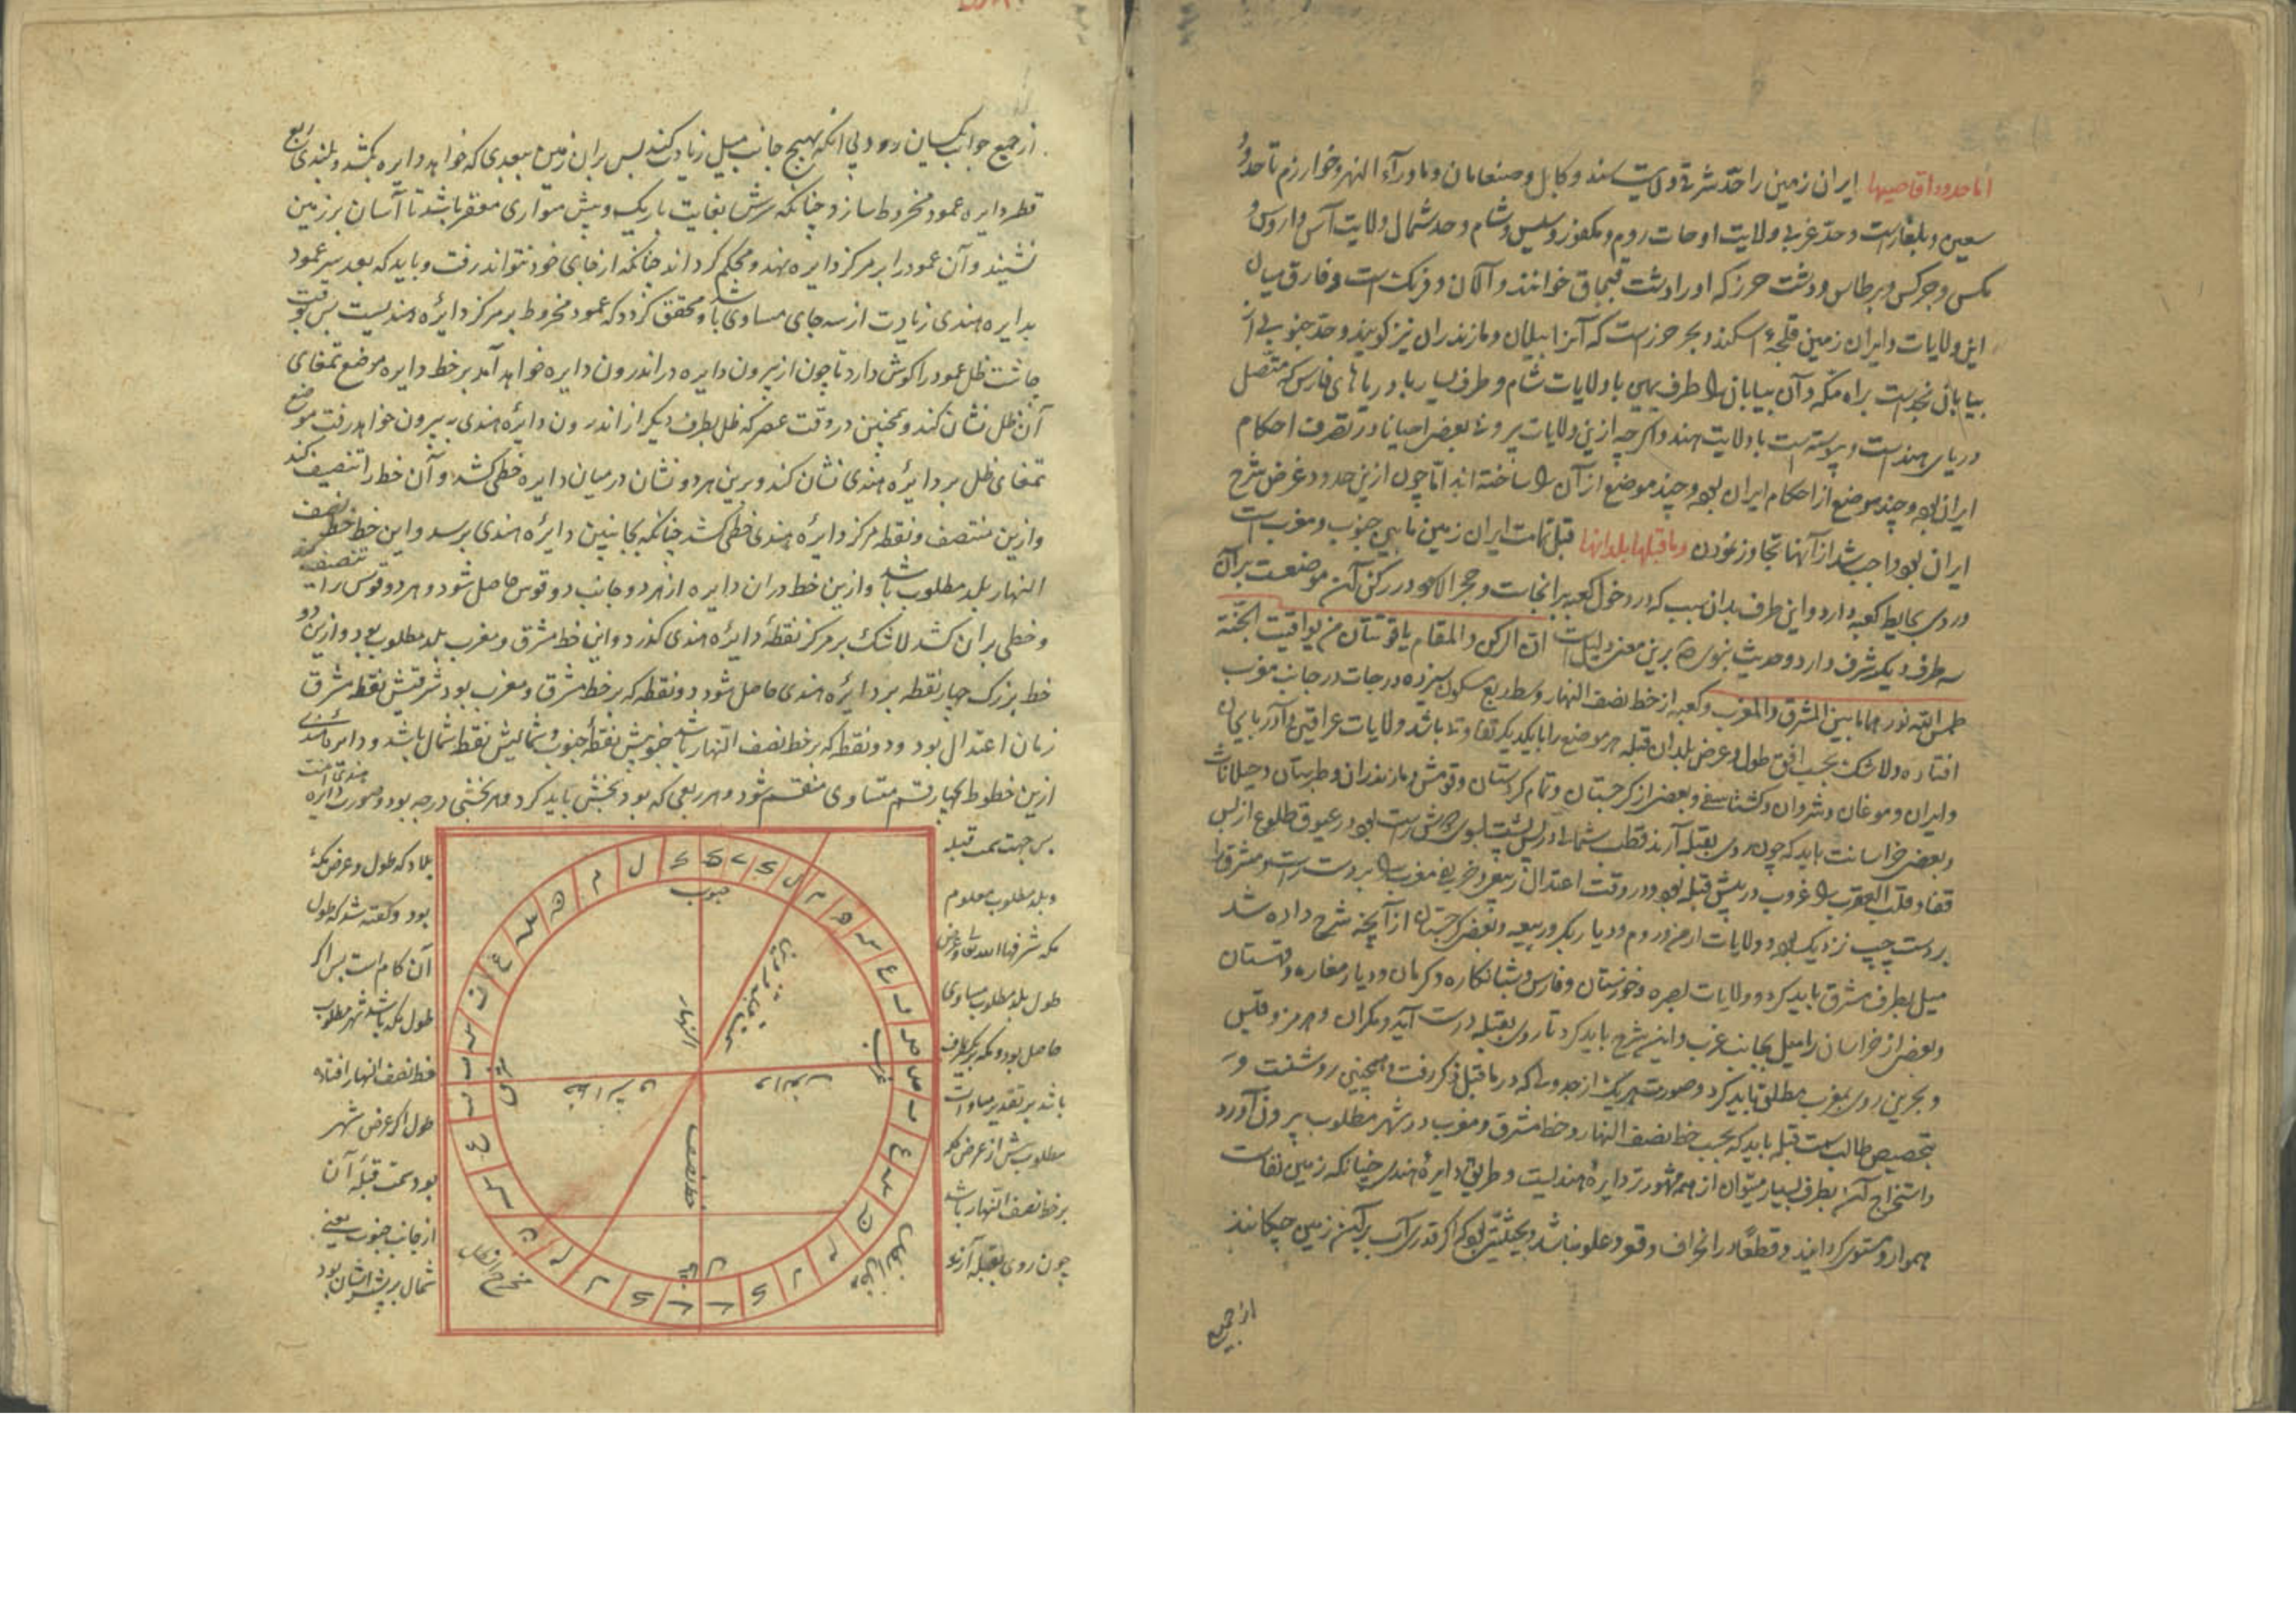 اما حدود اقاصیها ایران زمین را حد شرقی ولایت سند و کابل و صغانیان و ماوراء النهر و خوارزم تا حدود
سقسین و بلغار است و حد غربی ولایت اوجات روم و نکفور و سیس و شام و حد شمال ولایت آس و اروس و
مکس و چرکس و برطاس و دشت خزر که او را دشت قبچاق خوانند و آلان و فرنک است و فارق میان
این ولایات و ایران زمین فلجهٔ اسکندر و بحر خزر است که آنرا جیلان و مازندران نیز گویند و حد جنوبی از
بیابان نجد است براه مکه و آن بیابان را طرف یمین با ولایات شام و طرف یسار با دریای فارس که متصل
دریای هند است و پیوسته است با ولایت هند و اکرچه ازین ولایات بیرونی بعضی احیانا در تصرف احکام
ایران بوده و چند موضع از احکام ایران بوده و چند موضع از آن را ساخته‌اند اما چون ازین حدود غرض شرح
ایران بود واجب شد از آنها تجاوز نمودن و ما قبلها بلدانها قبله تمامت ایران زمین مابین جنوب و مغربست
و روی بحایط کعبه دارد و این طرف بدان سبب که در دخول کعبه بر آنجاست و حجر الاسود در رکن آن موضعست بر آن
سه طرف دیکر شرف دارد و حدیث نبوی برین معنی دلیلست ان الرکن و المقام یاقوتتان من یواقیت الجنة
طمس الله نورهما ما بین المشرق و المغرب و کعبه از خط نصف النهار وسط ربع مسکون سیزده درجات در جانب مغرب
افتاده و لاشک بحسب افق طول و عرض بلدان قبله هر موضع را با یکدیکر تفاوتی باشد ولایات عراقین و آذربایجان
و ایران و موغان و شروان و کشتاسفی و بعضی از کرجستان و تمام کردستان و قومش و مازندران و طبرستان و جیلانات
و بعضی خراسانت باید که چون روی بقبله آرند قطب شمالی در پس پشت بسوی کوش راست بود و عیوق طلوع از پس
قفا و قلب العقرب را غروب در پیش قبله بود و در وقت اعتدال ربیعی و خریفی مغرب را بر دست راست و مشرق را
بر دست چپ نزدیک بود و ولایات ارمن و روم و دیار بکر و ربیعه و بعضی کرجستان از آنچه شرح داده شد
میل بطرف مشرق باید کرد و ولایات بصره و خوزستان و فارس و شبانکاره و کرمان و دیار مفازه و قهستان
و بعضی از خراسان را میل بجانب غرب و این شرح باید کرد تا روی بقبله درست آید و مکران و هرمز و قیس
و بحرین روی بمغرب مطلق باید کرد و صورت هر یک از جدولی که در ما قبل ذکر رفت همچنین روشنست و
بتخصیص طالب سمت قبله باید که بحسب خط نصف النهار و خط مشرق و مغرب در شهر مطلوب بیرون آورد
و استخراج آن بطرق بسیار میتوان از همه مشهورتر دایرهٔ هندیست و طریق دایرهٔ هندی چنانکه زمین نقاست
هموار و مستوی کردانند و قطعا در انحراف و قعر و علو نباشد و بحیثیتی بود که اگر قدری آب بر آن زمین چکانند
از جمیع
از جمیع جوانب یکسان رود بی آنکه بهیچ جانب میل زیادت کند پس بر آن زمین ببعدی که خواهد دایره بکشد و بلندی ربع
قطر دایره عمود مخروط سازد چنانکه سرش بغایت باریک و بیش متوازی مقعر باشد تا آسان بر زمین
نشیند و آن عمود را بر مرکز دایره نهد و محکم کرداند چنانکه از جای خود نتواند رفت و باید که بعد سر عمود
بدایره هندی زیادت از سه جای مساوی باشد و محقق کردد که عمود مخروط بر مرکز دایرهٔ هندیست پس بوقت
چاشت ظل عمود را کوش دارد تا چون از بیرون دایره در اندرون دایره خواهد آمد بر خط دایره موضع تمغای
آن ظل نشان کند و همچنین در وقت عصر که ظل بطرف دیکر از اندرون دایرهٔ هندی به بیرون خواهد رفت موضع
تمغای ظل بر دایرهٔ هندی نشان کند و برین هر دو نشان در میان دایره خطی کشد و آن خط را تنصیف کند
و ازین منتصف و نقطه مرکز دایرهٔ هندی خطی کشد چنانکه بجانبین دایرهٔ هندی برسد و این خط خط نصف
النهار بلد مطلوب باشد و ازین خط در آن دایره از هر دو جانب دو قوس حاصل شود و هر دو قوس را تنصیف کند
و خطی بر آن کشد لاشک بر مرکز نقطهٔ دایرهٔ هندی کذرد و این خط مشرق و مغرب بلد مطلوب بود و ازین دو
خط بزرک چهار نقطه بر دایرهٔ هندی حاصل شود دو نقطه که بر خط مشرق و مغرب بود شرقیش نقطه مشرق
زمان اعتدال بود و دو نقطه که بر خط نصف النهار باشد جنوبیش نقطهٔ جنوب و شمالیش نقطه شمال باشد و دایره هندی
ازین خطوط بچهار قسم متساوی منقسم شود و هر ربعی که بود بخش باید کرد و هر بخشی درجه بود و صورت دایره هندی اینست
پس جهت سمت قبله
و بلد مطلوب معلوم
مکه شرفها الله تعالی و عرض
طول بلد مطلوب مساوی
حاصل بود و مکه بر یکطرف
باشد بر تقدیر مساوات
مطلوب بیش از عرض مکه
بر خط نصف النهار باشد
چون روی بقبله آرند
بلاد که طول و عرض مکه
بود و کفته شد که طول
آن کدام است پس اکر
طول مکه باشد شهر مطلوب
خط نصف النهار افتاده
طول اکر عرض شهر
بود سمت قبلهٔ آن
از جانب جنوب یعنی
شمال بر پشت ایشان بود
جنوب
النهار
خط نصف